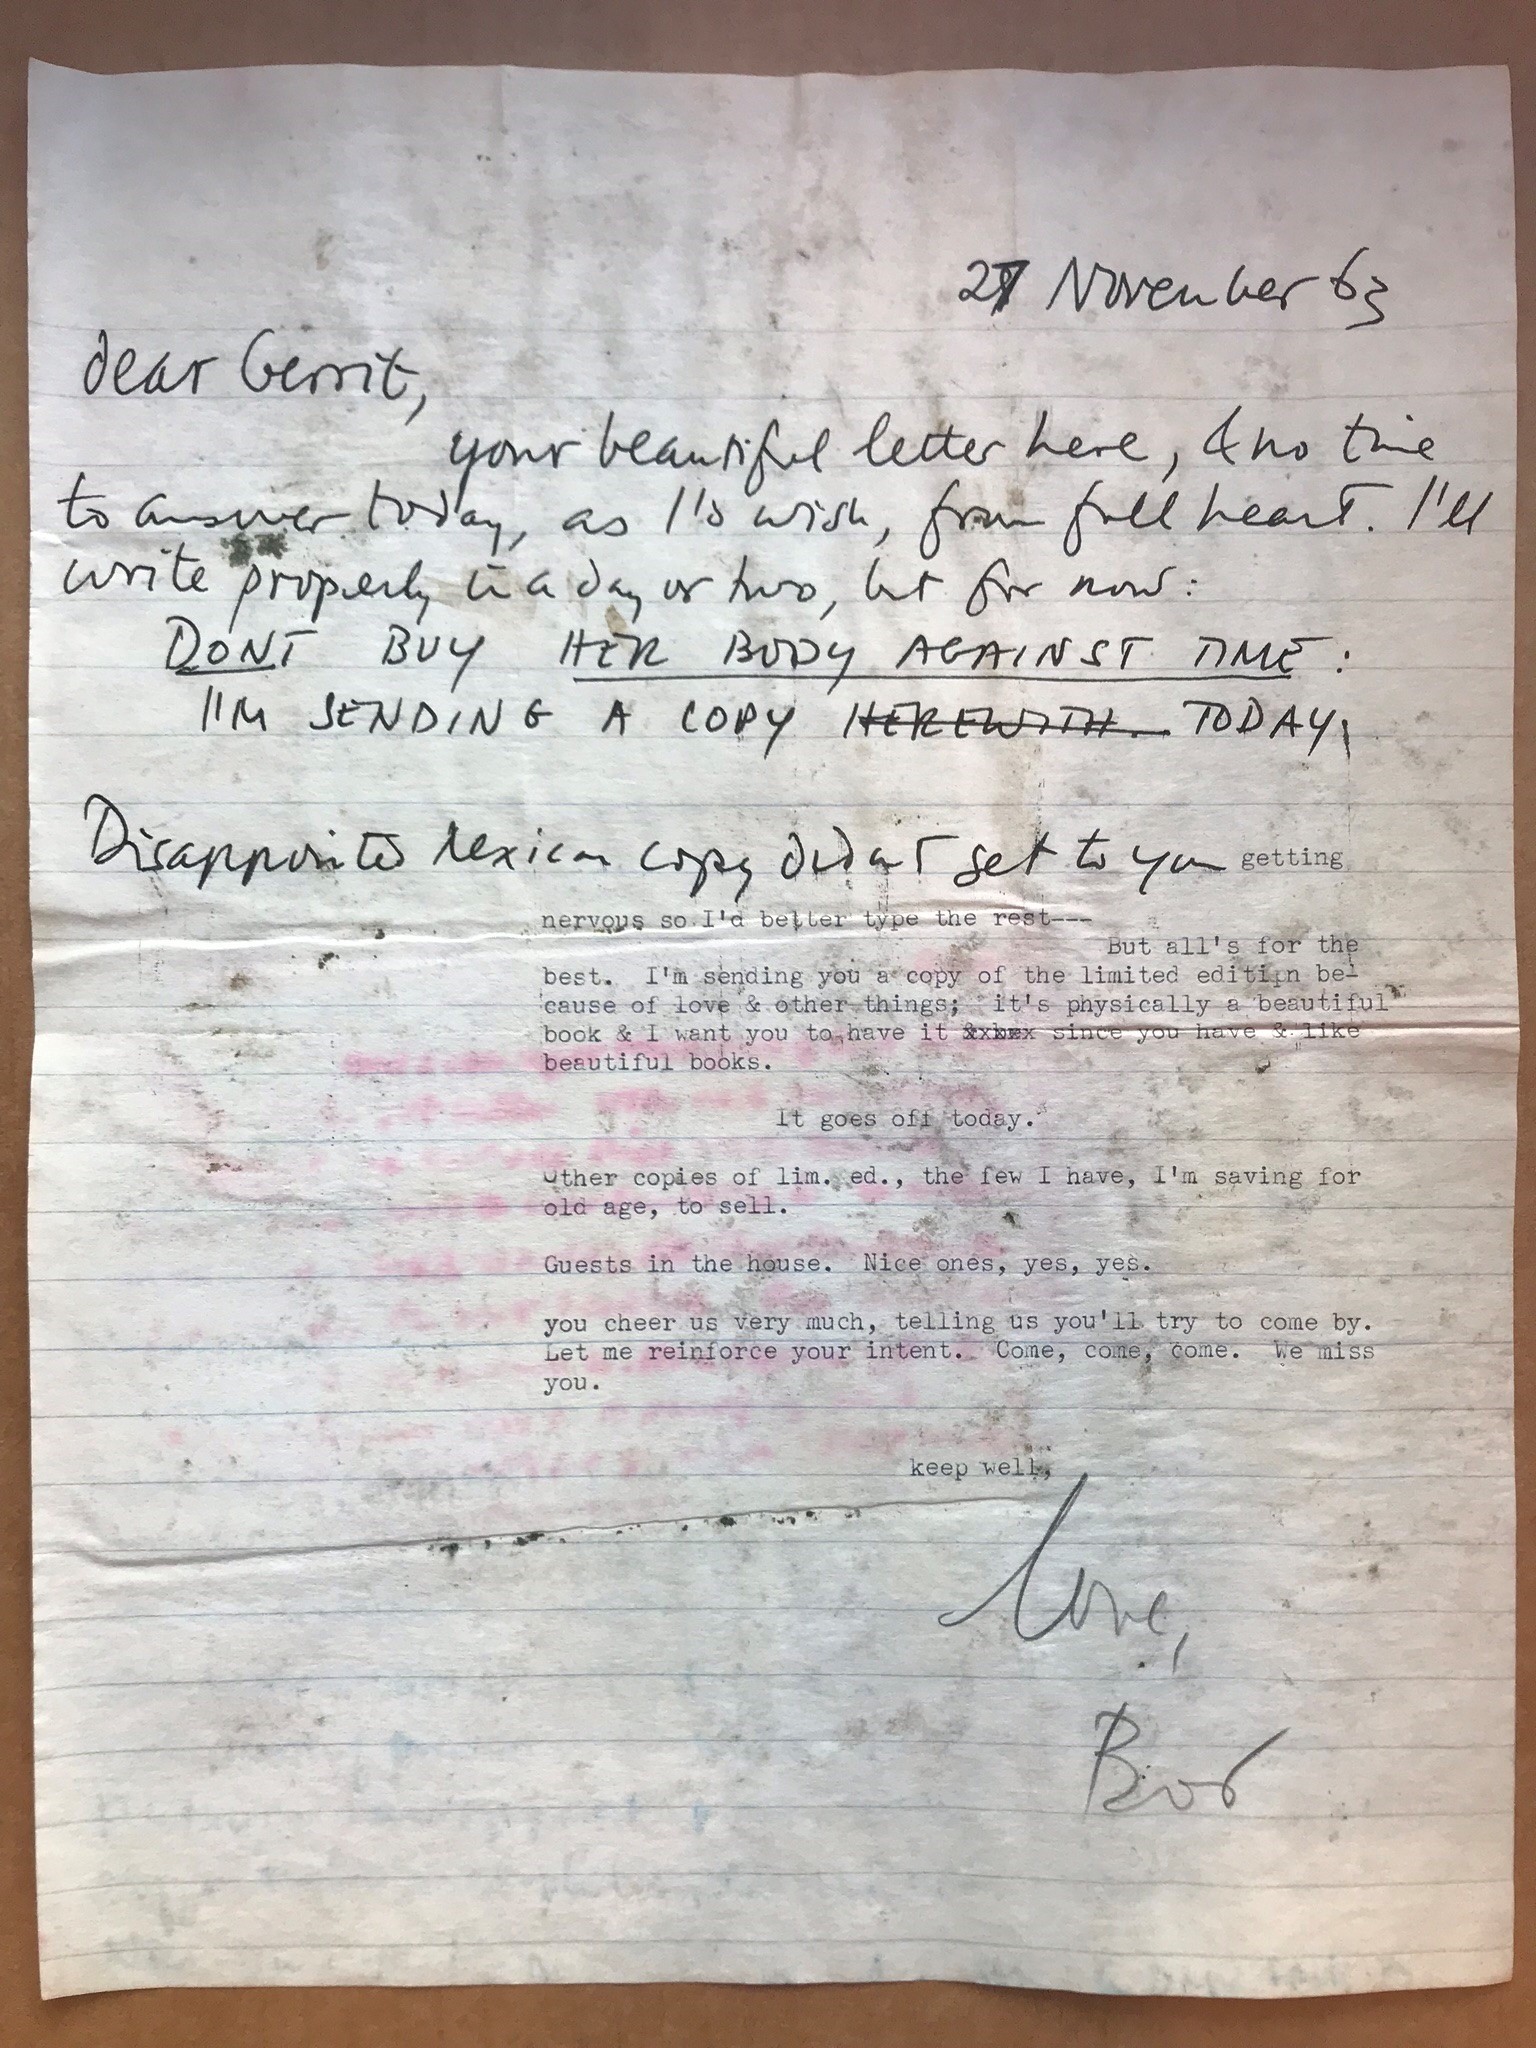 27 November 63
dear Gerrit,
your beautiful letter here, & no time
to answer today, as I'd wish, from full heart. I'll
write properly in a day or two, but for now:
DONT BUY HER BODY AGAINST TIME:
I'M SENDING A COPY HEREWITH. TODAY,
Disappointed Mexican copy didn't get to you getting
nervous so I'd better type the rest---
But all's for the
best. I'm sending you a copy of the limited editipn be-
cause of love & other things; it's physically a beautiful
book & I want you to have it &xhxx since you have & like
beautiful books.
It goes off today.
Other copies of lim. ed., the few I have, I'm saving for
old age, to sell.
Guests in the house. Nice ones, yes, yes.
you cheer us very much, telling us you'll try to come by.
Let me reinforce your intent. Come, come, come. We miss
you.
keep well,
love,
Bob